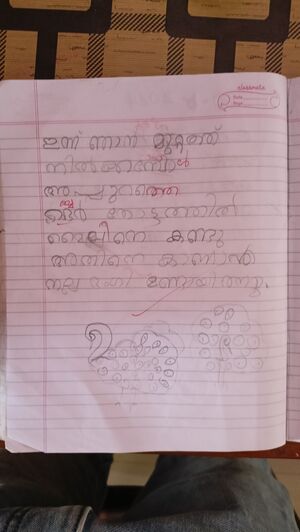 classmate
Date
Page
ഇന്ന് ഞാൻ മുറ്റത്ത്
നിൽക്കുമ്പോൾ
അപ്പുറത്തെ
തോട്ടത്തിൽ
കണ്ടു
അതിനെ കാണാൻ
നല്ല ഭംഗി ഉണ്ടായിരുന്നു.